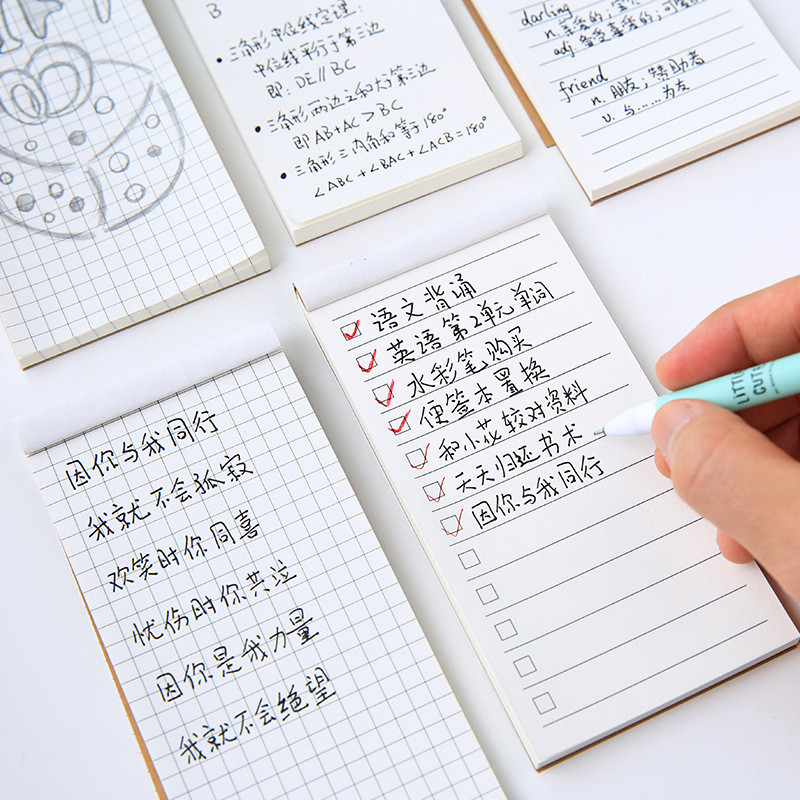 B
• 三角形中位线定理:
中位线平行于第三边
即: DE // BC
• 三角形两边之和大于第三边
即 AB+AC > BC
• 三角形三内角和等于180°
∠ABC + ∠BAC + ∠ACB = 180°
darling
adj. 备受喜爱的; 可爱的
friend
n. 朋友; 赞助者
v. 与……为友
语文背诵
英语第2单元单词
水彩笔购买
便签本置换
和小花较对资料
天天归还书术
因你与我同行
因你与我同行
我就不会孤寂
欢笑时你同喜
忧伤时你共泣
因你是我力量
我就不会绝望
LITTLE